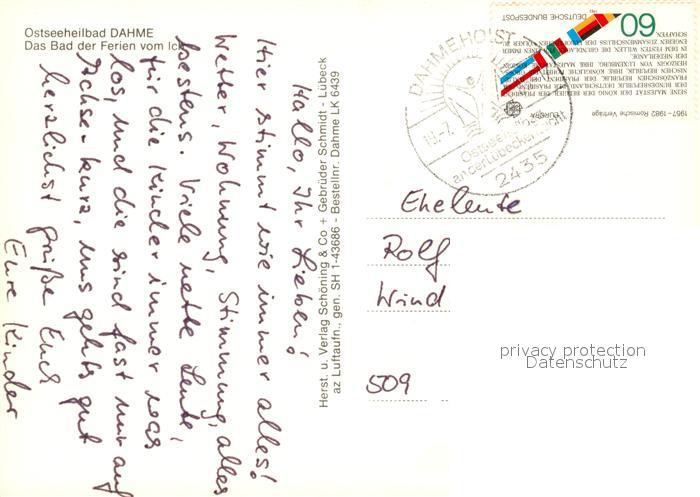 Ostseeheilbad DAHME
Das Bad der Ferien vom Ich
Hallo, Ihr Lieben!
Hier stimmt wie immer alles!
Wetter, Wohnung, Stimmung, alles
bestens. Viele nette Leute,
für die Kinder immer was
los, und die sind fast nur auf
Achse. kurz, uns gehts gut
herzlichst grüße Euch
Eure Kinder
Herst. u. Verlag Schöning & Co + Gebrüder Schmidt - Lübeck
az Luftaufn., gen. SH 1-43686 - Bestellnr. Dahme LK 6439
DEUTSCHE BUNDESPOST
60
1957-1982 Römische Verträge
EUROPA
DAHME HOLST
Ostseeheilbad
an der Lübecker Bucht
2435
Eheleute
Rolf
Wind
509
privacy protection
Datenschutz